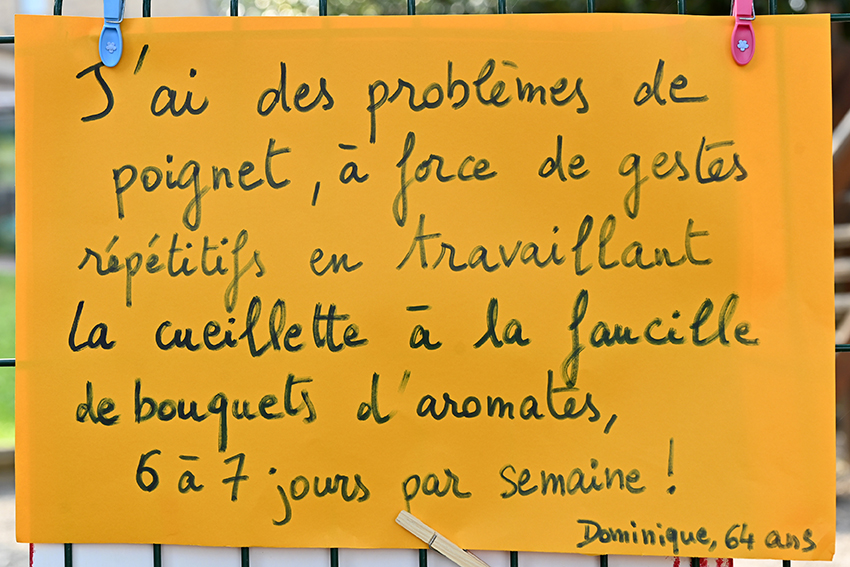 J'ai des problèmes de
poignet, à force de gestes
répétitifs en travaillant
la cueillette à la faucille
de bouquets d'aromates,
6 à 7 jours par semaine !
Dominique, 64 ans